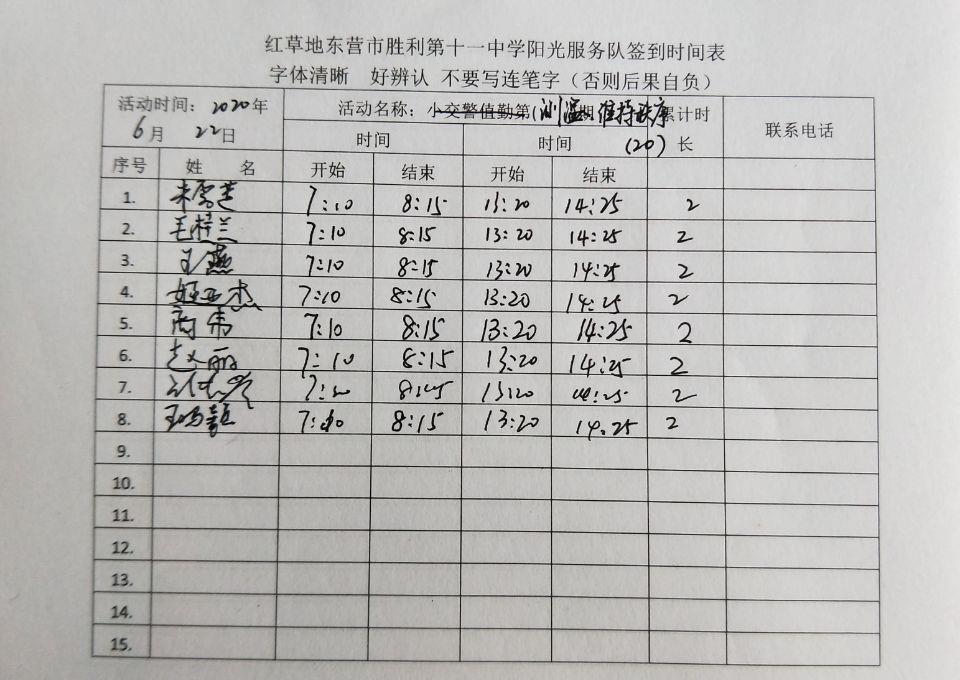 红草地东营市胜利第十一中学阳光服务队签到时间表
字体清晰 好辨认 不要写连笔字（否则后果自负）
活动时间：2020年 6月 22日 活动名称：小交警值勤第（测温 期 维持秩序 累计时长 联系电话
时间 时间 (20)
序号 姓 名 开始 结束 开始 结束
1. 7:10 8:15 13:20 14:25 2
2. 毛桂兰 7:10 8:15 13:20 14:25 2
3. 王燕 7:10 8:15 13:20 14:25 2
4. 姬亚杰 7:10 8:15 13:20 14:25 2
5. 商伟 7:10 8:15 13:20 14:25 2
6. 赵丽 7:10 8:15 13:20 14:25 2
7. 13:20 14:25 2
8. 7:10 8:15 13:20 14:25 2
9.
10.
11.
12.
13.
14.
15.